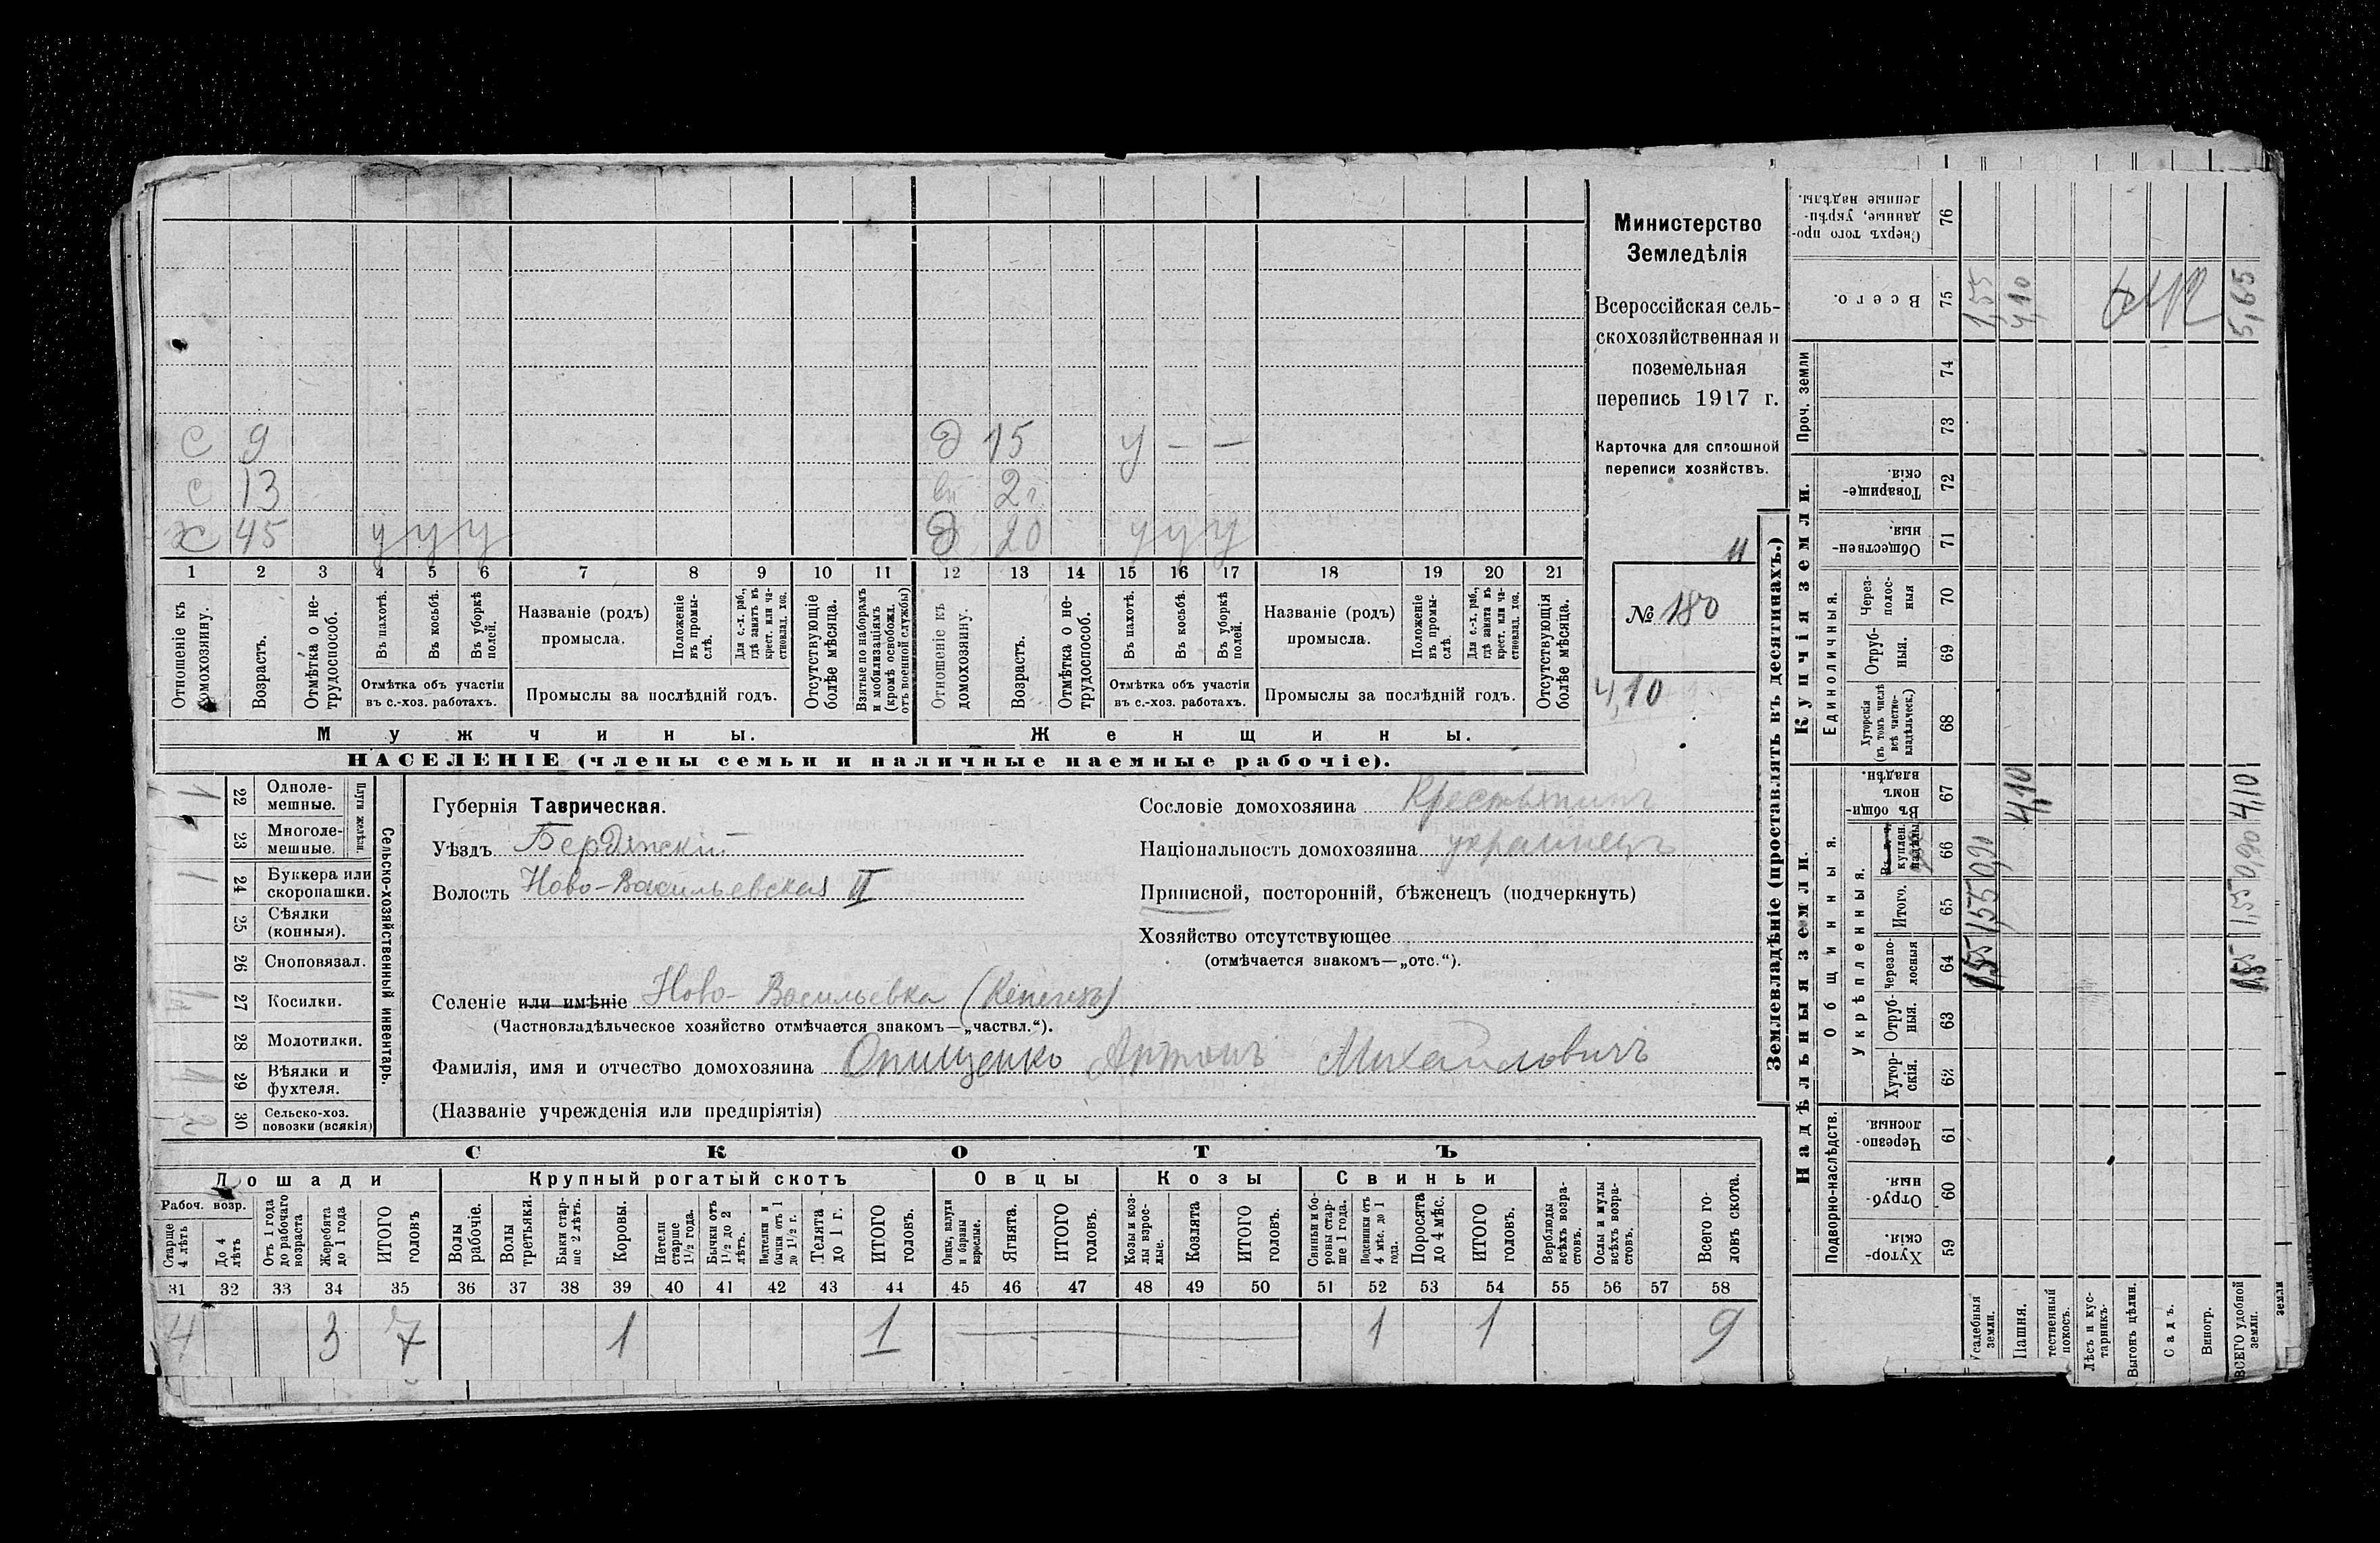 Министерство
Земледѣлія
Всероссійская сель-
скохозяйственная и
поземельная
перепись 1917 г.
Карточка для сплошной
переписи хозяйствъ.
11
№ 180
4,10
с 9
с 13
х 45 у у у
д 15 у – –
вн 2 г.
д 20 у у у
1 2 3 4 5 6 7 8 9 10 11 12 13 14 15 16 17 18 19 20 21
Отношеніе къ домохозяину.
Возрастъ.
Отмѣтка о не-
трудоспособ.
Въ пахотѣ.
Въ косьбѣ.
Въ уборкѣ
полей.
Отмѣтка объ участіи
въ с.-хоз. работахъ.
Названіе (родъ)
промысла.
Положеніе
въ промы-
слѣ.
Для с.-х. раб.,
гдѣ занятъ въ
крест. или ча-
стновлад. хоз.
Промыслы за послѣдній годъ.
Отсутствующіе
болѣе мѣсяца.
Взятые по наборамъ
и мобилизаціямъ
(кромѣ освобожд.
отъ военной службы)
Отношеніе къ
домохозяину.
Возрастъ.
Отмѣтка о не-
трудоспособ.
Въ пахотѣ.
Въ косьбѣ.
Въ уборкѣ
полей.
Отмѣтка объ участіи
въ с.-хоз. работахъ.
Названіе (родъ)
промысла.
Положеніе
въ промы-
слѣ.
Для с.-х. раб.,
гдѣ занята въ
крест. или ча-
стновлад. хоз.
Промыслы за послѣдній годъ.
Отсутствующія
болѣе мѣсяца.
Мужчины.
Женщины.
НАСЕЛЕНІЕ (члены семьи и наличные наемные рабочіе).
Сельско-хозяйственный инвентарь.
Плуги желѣзн.
22 Одноле-
мешные. 1
23 Многоле-
мешные.
24 Буккера или
скоропашки. 1
25 Сѣялки
(конныя).
26 Сноповязал.
27 Косилки. 1
28 Молотилки.
29 Вѣялки и
фухтеля. 1
30 Сельско-хоз.
повозки (всякія) 2
Губернія Таврическая.
Уѣздъ Бердянскій
Волость Ново-Васильевская II
Селеніе или имѣніе Ново-Васильевка
(Частновладѣльческое хозяйство отмѣчается знакомъ—„частвл.“).
Фамилія, имя и отчество домохозяина Онищенко Антонъ Михайловичъ
(Названіе учрежденія или предпріятія)
Сословіе домохозяина Крестьянинъ
Національность домохозяина украинецъ
Приписной, посторонній, бѣженецъ (подчеркнуть)
Хозяйство отсутствующее
(отмѣчается знакомъ—„отс.“).
СКОТЪ
Лошади
Крупный рогатый скотъ
Овцы
Козы
Свиньи
Рабоч. возр.
Старше
4 лѣтъ
До 4
лѣтъ
Отъ 1 года
до рабочаго
возраста
Жеребята
до 1 года
ИТОГО
головъ
Волы
рабочіе.
Волы
третьяки.
Быки стар-
ше 2 лѣтъ.
Коровы.
Нетели
старше
1½ года.
Бычки отъ
1½ до 2
лѣтъ.
Подтелки и
бычки отъ 1
до 1½ г.
Телята
до 1 г.
ИТОГО
головъ.
Овцы, валухи
и бараны
взрослые.
Ягнята.
ИТОГО
головъ.
Козы и коз-
лы взрос-
лые.
Козлята
ИТОГО
головъ.
Свиньи и бо-
ровы стар-
ше 1 года.
Подсвинки отъ
4 мѣс. до 1
года.
Поросята
до 4 мѣс.
ИТОГО
головъ.
Верблюды
всѣхъ возра-
стовъ.
Ослы и мулы
всѣхъ возра-
стовъ.
Всего го-
ловъ скота.
31 32 33 34 35 36 37 38 39 40 41 42 43 44 45 46 47 48 49 50 51 52 53 54 55 56 57 58
4 3 7 1 1 1 1 9
Землевладѣніе (проставлять въ десятинахъ.)
Надѣльныя земли.
Купчія земли.
Проч. земли
Подворно-наслѣдств.
Общинныя.
Укрѣпленныя.
Единоличныя.
Хутор-
скія. 59
Отруб-
ныя. 60
Черезпо-
лосныя. 61
Хутор-
скія. 62
Отруб-
ныя. 63
Черезпо-
лосныя 64
Итого. 65
Въ т. ч.
куплен.
надѣлы 66
Въ общи-
номъ
владѣн. 67
Хуторскія
(въ томъ числѣ
всѣ частно-
владѣльческ.) 68
Отруб-
ныя. 69
Через-
полос-
ныя 70
Обществен-
ныя. 71
Товарище-
скія. 72
73
74
Всего. 75
Сверхъ того про-
данные, укрѣп-
ленные надѣлы. 76
Усадебныя
земли. 1,55 1,55 0,90 1,55
Пашня. 4,10 4,10
тественный
покосъ.
Лѣсъ и кус-
тарникъ.
Выгонъ цѣлин.
Садъ.
Виногр.
ВСЕГО удобной
земли. 1,55 1,55 0,90 4,10 5,65
земли